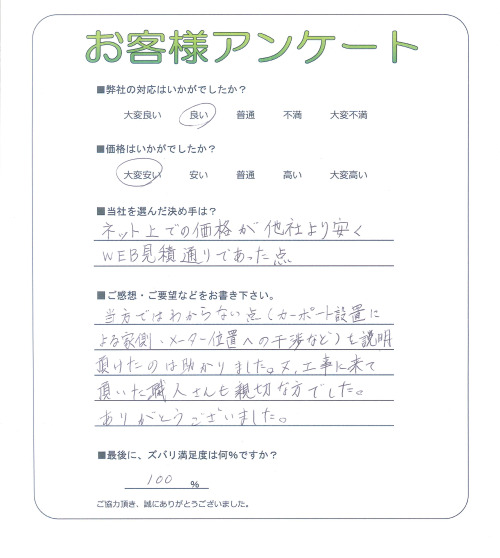 お客様アンケート
■弊社の対応はいかがでしたか？
大変良い 良い 普通 不満 大変不満
■価格はいかがでしたか？
大変安い 安い 普通 高い 大変高い
■当社を選んだ決め手は？
ネット上での価格が他社より安く
WEB見積通りであった点
■ご感想・ご要望などをお書き下さい。
当方ではわからない点（カーポート設置に
よる家側、メーター位置への干渉など）も説明
頂けたのは助かりました。又、工事に来て
頂いた職人さんも親切な方でした。
ありがとうございました。
■最後に、ズバリ満足度は何%ですか？
100 %
ご協力頂き、誠にありがとうございました。